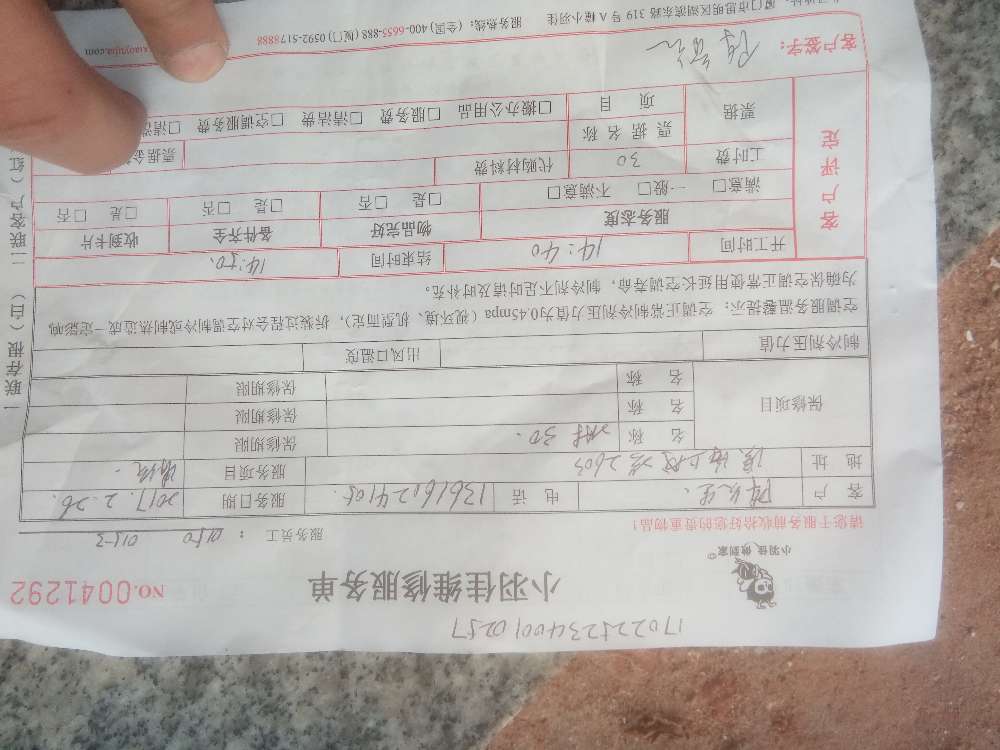 1702252234001 0257
小羽佳 做到家
小羽佳维修服务单
NO.0041292
请您于服务前收拾好您的贵重物品!
服务员工: 0150 0153
客户 陈先生. 电话 13616024105. 服务日期 2017.2.26.
地址 2603 服务项目
保修项目
名称 30. 保修期限
名称 保修期限
名称 保修期限
制冷剂压力值 出风口温度
空调服务温馨提示:空调正常制冷剂压力值为0.45mpa(视环境、机型而定),拆装过程会对空调制冷或制热造成一定影响,
为确保空调正常使用延长空调寿命,制冷剂不足时请及时补充。
客户评定
开工时间 14:40 结束时间 14:50.
服务态度 物品完好 备件齐全 收到卡片
满意□ 一般□ 不满意□ □是 □否 □是 □否 □是 □否
工时费 30 代购材料费
票据 票据名称 票据金
项目 □搬办公用品 □服务费 □清洁费 □空调服务费 □清洗
客户签字:
厦门市思明区湖滨东路 319 号 A 楼小羽佳 服务热线:(全国) 400-6655-888 (厦门) 0592-5178888
xiaoyujia.com
一联存根(白) 二联客户(红